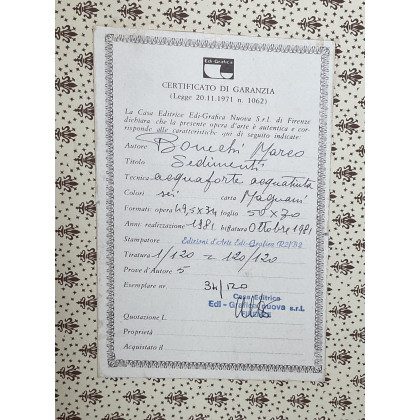 Edi-Grafica
CERTIFICATO DI GARANZIA
(Legge 20.11.1971 n. 1062)
La Casa Editrice Edi-Grafica Nuova S.r.l. di Firenze
dichiara che la presente opera d'arte è autentica e cor-
risponde alle caratteristiche qui di seguito indicate:
Autore Bonechi Marco
Titolo Sedimenti
Tecnica acquaforte acquatinta
Colori sei carta Magnani
Formati: opera 49,5x34 foglio 50x70
Anni: realizzazione 1981 tiratura Ottobre 1981
Stampatore Edizioni d'Arte Edi-Grafica
Tiratura 1/120 = 120/120
Prove d'Autore 5
Esemplare nr. 34/120
Casa Editrice
Edi-Grafica nuova s.r.l.
FIRENZE
Quotazione L.
Proprietà
Acquistato il